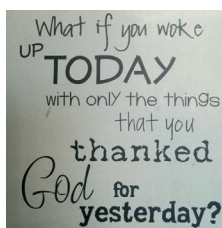 What if you woke
UP TODAY
with only the things
that you
thanked
God for
yesterday?